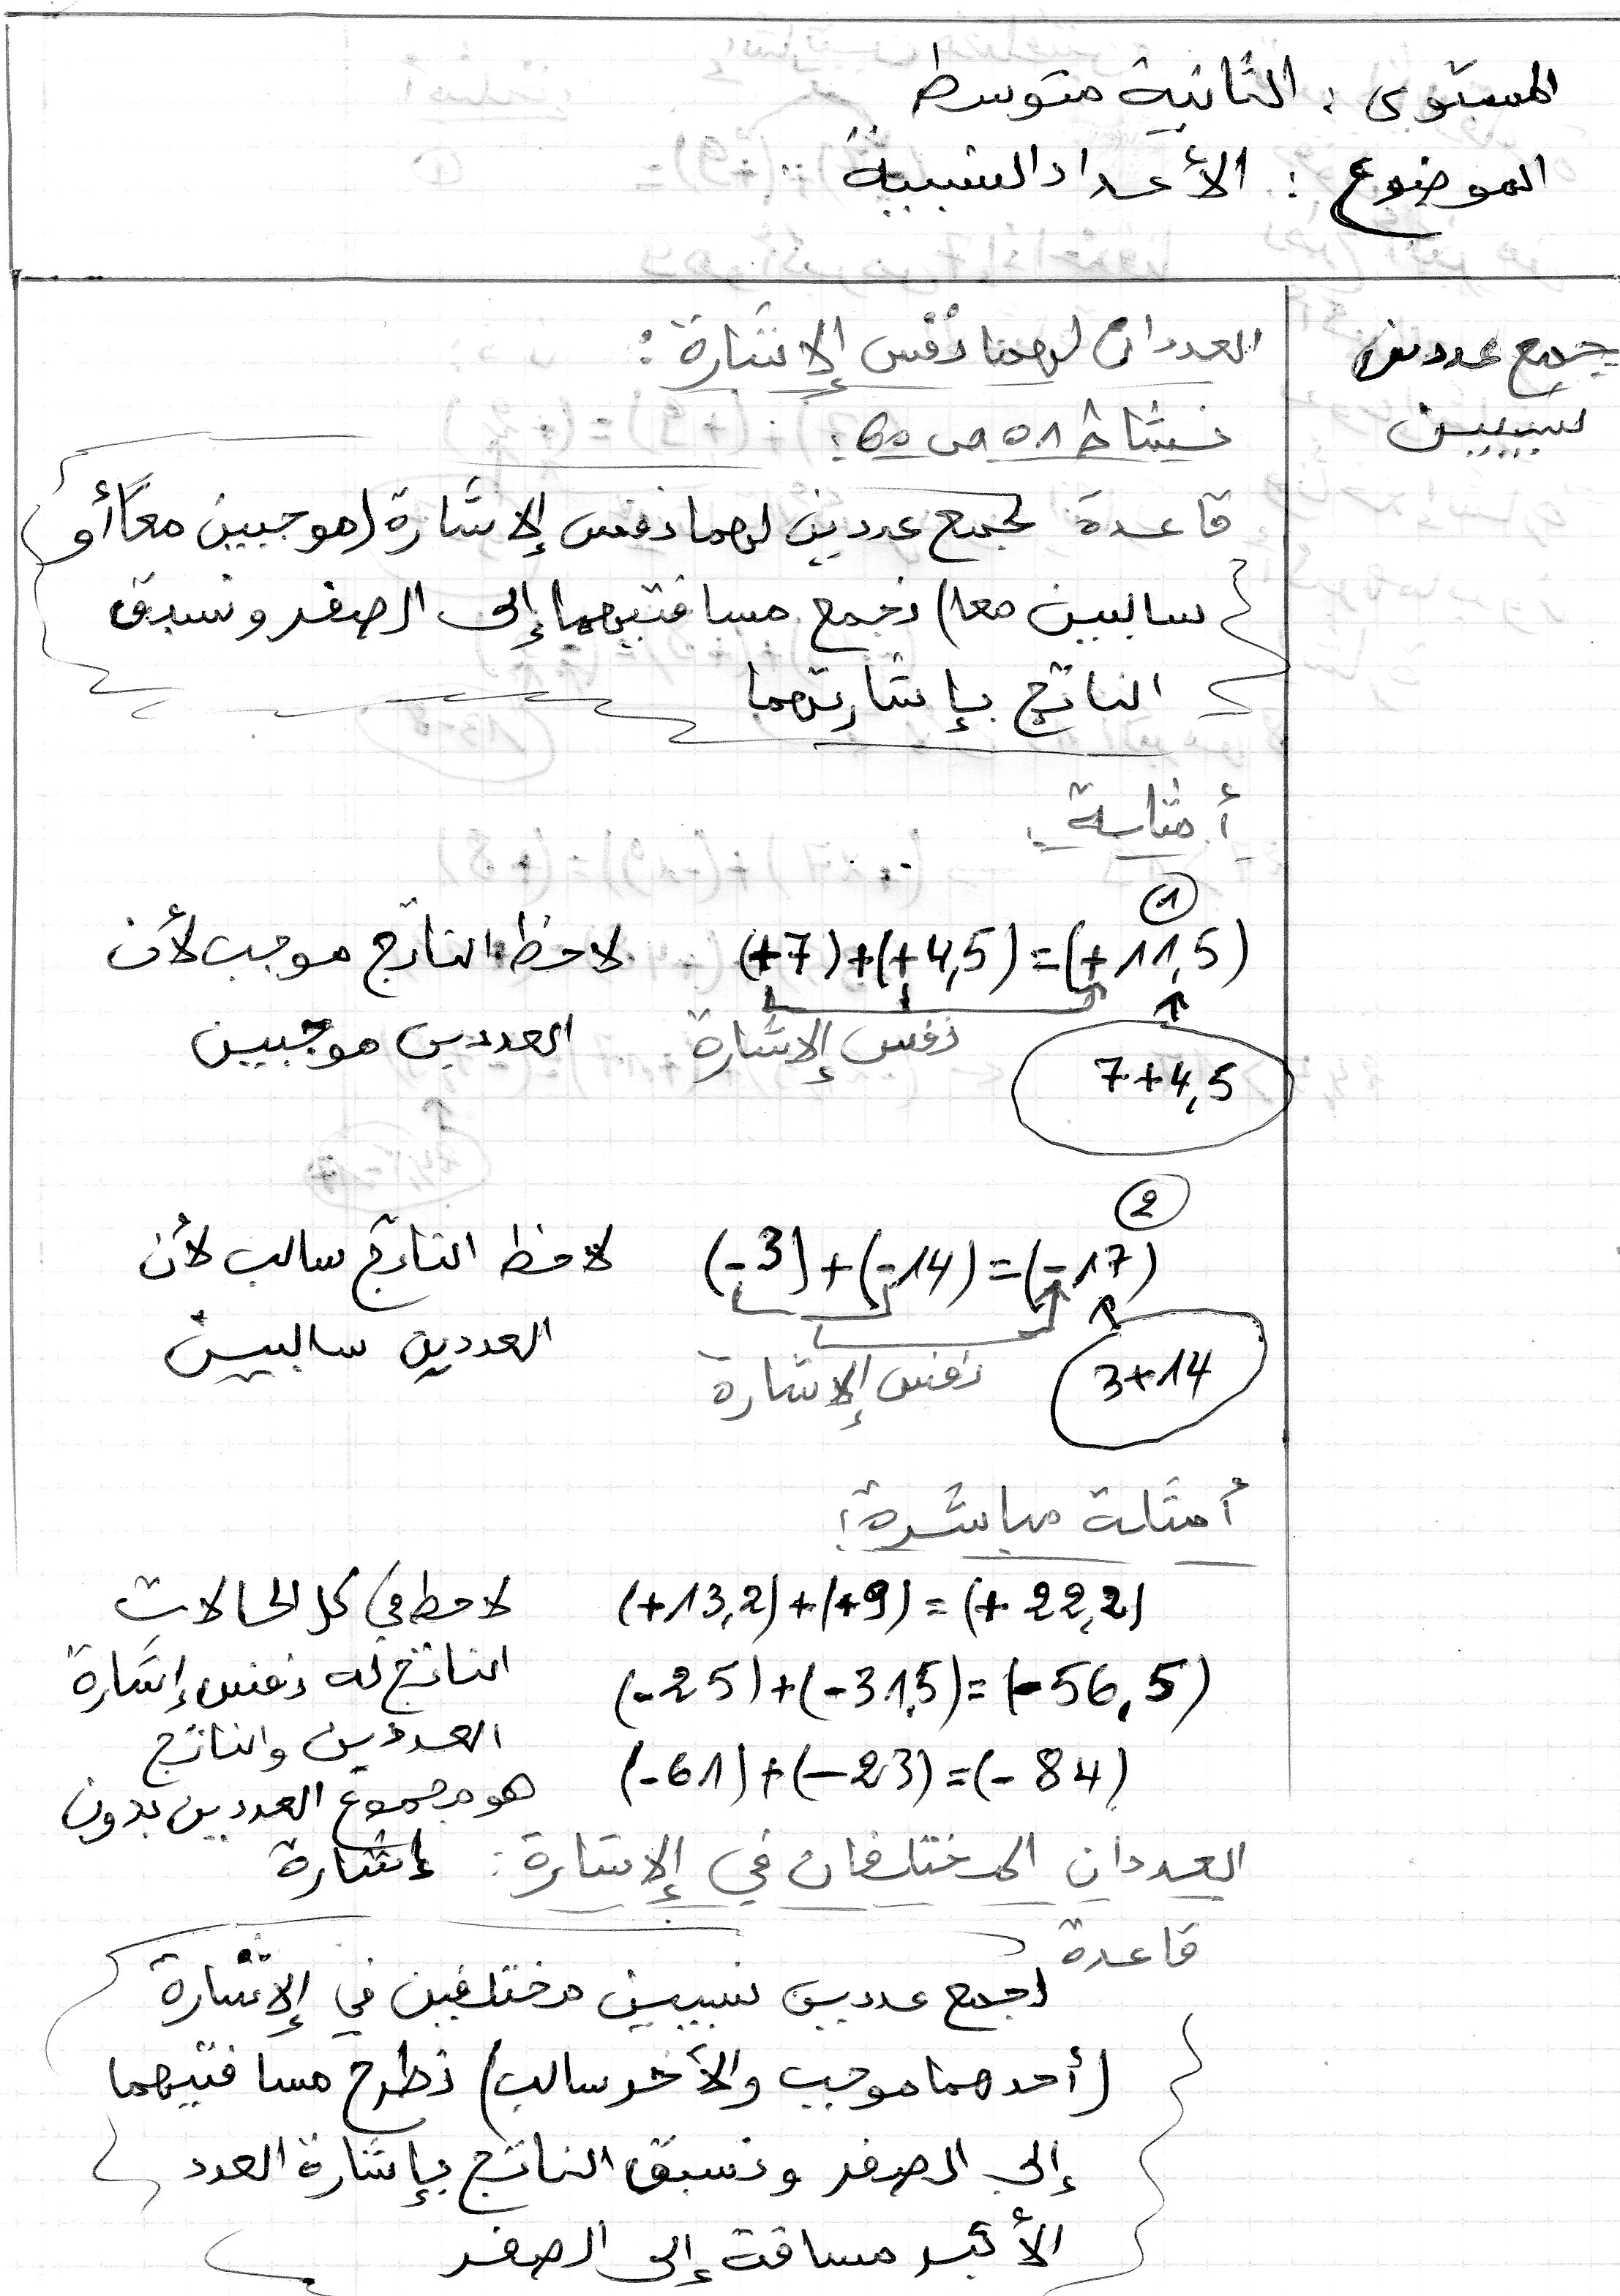 المستوى : الثانية متوسط
الموضوع : الأعداد النسبية
جمع عددين
نسبيين
العددان لهما نفس الإشارة :
نشاط 01 ص 60 :
قاعدة لجمع عددين لهما نفس الإشارة (موجبين معاً أو
سالبين معا) نجمع مسافتيهما إلى الصفر ونسبق
الناتج بإشارتهما
أمثلة :
①
(+7)+(+4,5)=(+11,5) لاحظ الناتج موجب لأن
نفس الإشارة العددين موجبين
7+4,5
②
(-3)+(-14)=(-17) لاحظ الناتج سالب لأن
العددين سالبين
نفس الإشارة
3+14
أمثلة مباشرة :
(+13,2)+(+9)=(+22,2) لاحظ في كل الحالات
(-25)+(-31,5)=(-56,5) الناتج له نفس إشارة
العددين والناتج
(-61)+(-23)=(-84) هو مجموع العددين بدون
إشارة
العددان المختلفان في الإشارة :
قاعدة
لجمع عددين نسبيين مختلفين في الإشارة
(أحدهما موجب والآخر سالب) نطرح مسافتيهما
إلى الصفر ونسبق الناتج بإشارة العدد
الأكبر مسافة إلى الصفر